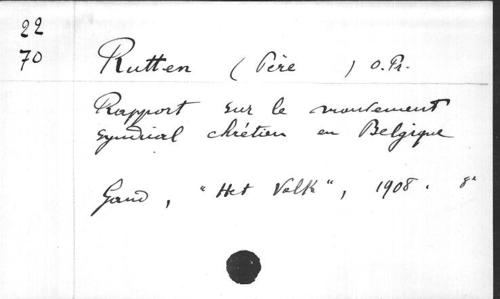 22
70
Rutten (Père ) O. Pr.
Rapport sur le mouvement
syndical chrétien en Belgique
Gand, "Het Volk", 1908. 8°